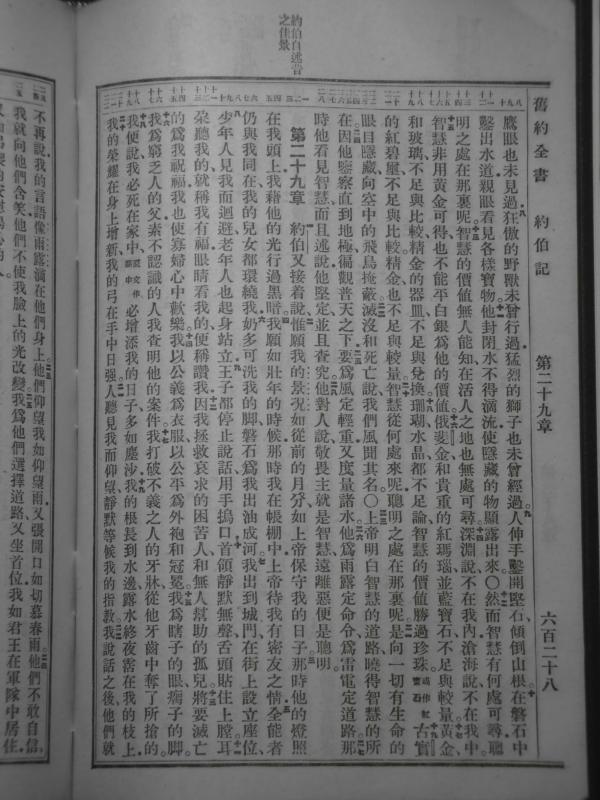 約伯自述昔
之佳景
舊約全書　約伯記　第二十九章　六百二十八
鷹眼也未見過狂傲的野獸未曾行過猛烈的獅子也未曾經過人伸手鑿開堅石傾倒山根在磐石中
鑿出水道親眼看見各樣寶物他封閉水不得滴流使隱藏的物顯露出來〇然而智慧有何處可尋聰
明之處在那裏呢智慧的價值無人能知在活人之地也無處可尋深淵說不在我內滄海說不在我中
智慧非用黃金可得也不能平白銀爲他的價值俄斐金和貴重的紅瑪瑙並藍寶石不足與較量黃金
和玻璃不足與比較精金的器皿不足與兌換珊瑚水晶都不足論智慧的價值勝過珍珠或作紅寶石古實
的紅碧璽不足與比較精金也不足與較量智慧從何處來呢聰明之處在那裏呢是向一切有生命的
眼目隱藏向空中的飛鳥掩蔽滅沒和死亡說我們風聞其名〇上帝明白智慧的道路曉得智慧的所
在因他鑒察直到地極徧觀普天之下要爲風定輕重又度量諸水他爲雨露定命令爲雷電定道路那
時他看見智慧而且述說他堅定並且查究他對人說敬畏主就是智慧遠離惡便是聰明
第二十九章　約伯又接着說惟願我的景況如從前的月分如上帝保守我的日子那時他的燈照
在我頭上我藉他的光行過黑暗我願如壯年的時候那時我在帳棚中上帝待我有密友之情全能者
仍與我同在我的兒女都環繞我奶多可洗我的脚磐石爲我出油成河我出到城門在街上設立座位
少年人見我而迴避老年人也起身站立王子都停止說話用手摀口首領靜默無聲舌頭貼住上膛耳
朵聽我的就稱我有福眼睛看我的便稱讚我因我拯救哀求的困苦人和無人幫助的孤兒將要滅亡
的爲我祝福我也使寡婦心中歡樂我以公義爲衣服以公平爲外袍和冠冕我爲瞎子的眼瘸子的脚
我爲窮乏人的父素不認識的人我查明他的案件我打破不義之人的牙牀從他牙齒中奪了所搶的
我便說我必死在家中原文作窩中必增添我的日子多如塵沙我的根長到水邊露水終夜霑在我的枝上
我的榮耀在身上增新我的弓在手中日強人聽見我而仰望靜默等候我的指教我說話之後他們就
不再說我的言語像雨露滴在他們身上他們仰望我如仰望雨又張開口如切慕春雨他們不敢自信
我就向他們含笑他們不使我臉上的光改變我爲他們選擇道路又坐首位我如君王在軍隊中居住